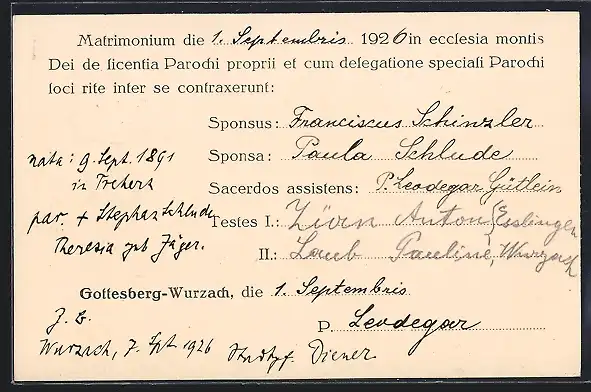 Matrimonium die 1. Septembris 1926 in ecclesia montis
Dei de licentia Parochi proprii et cum delegatione speciali Parochi
loci rite inter se contraxerunt:
Sponsus: Franciscus Schinzler
Sponsa: Paula Schlude
Sacerdos assistens: P. Leodegar Gütlein
Testes I.: Anton Esslingen
II.: Laub Pauline, Wurzach
nata: 9. Sept. 1891
in
par. + Stephan Schlude
Theresia geb Jäger.
Gottesberg-Wurzach, die 1. Septembris
P. Leodegar
Wurzach, 7. Spt. 1926 Stadtpf. Diener